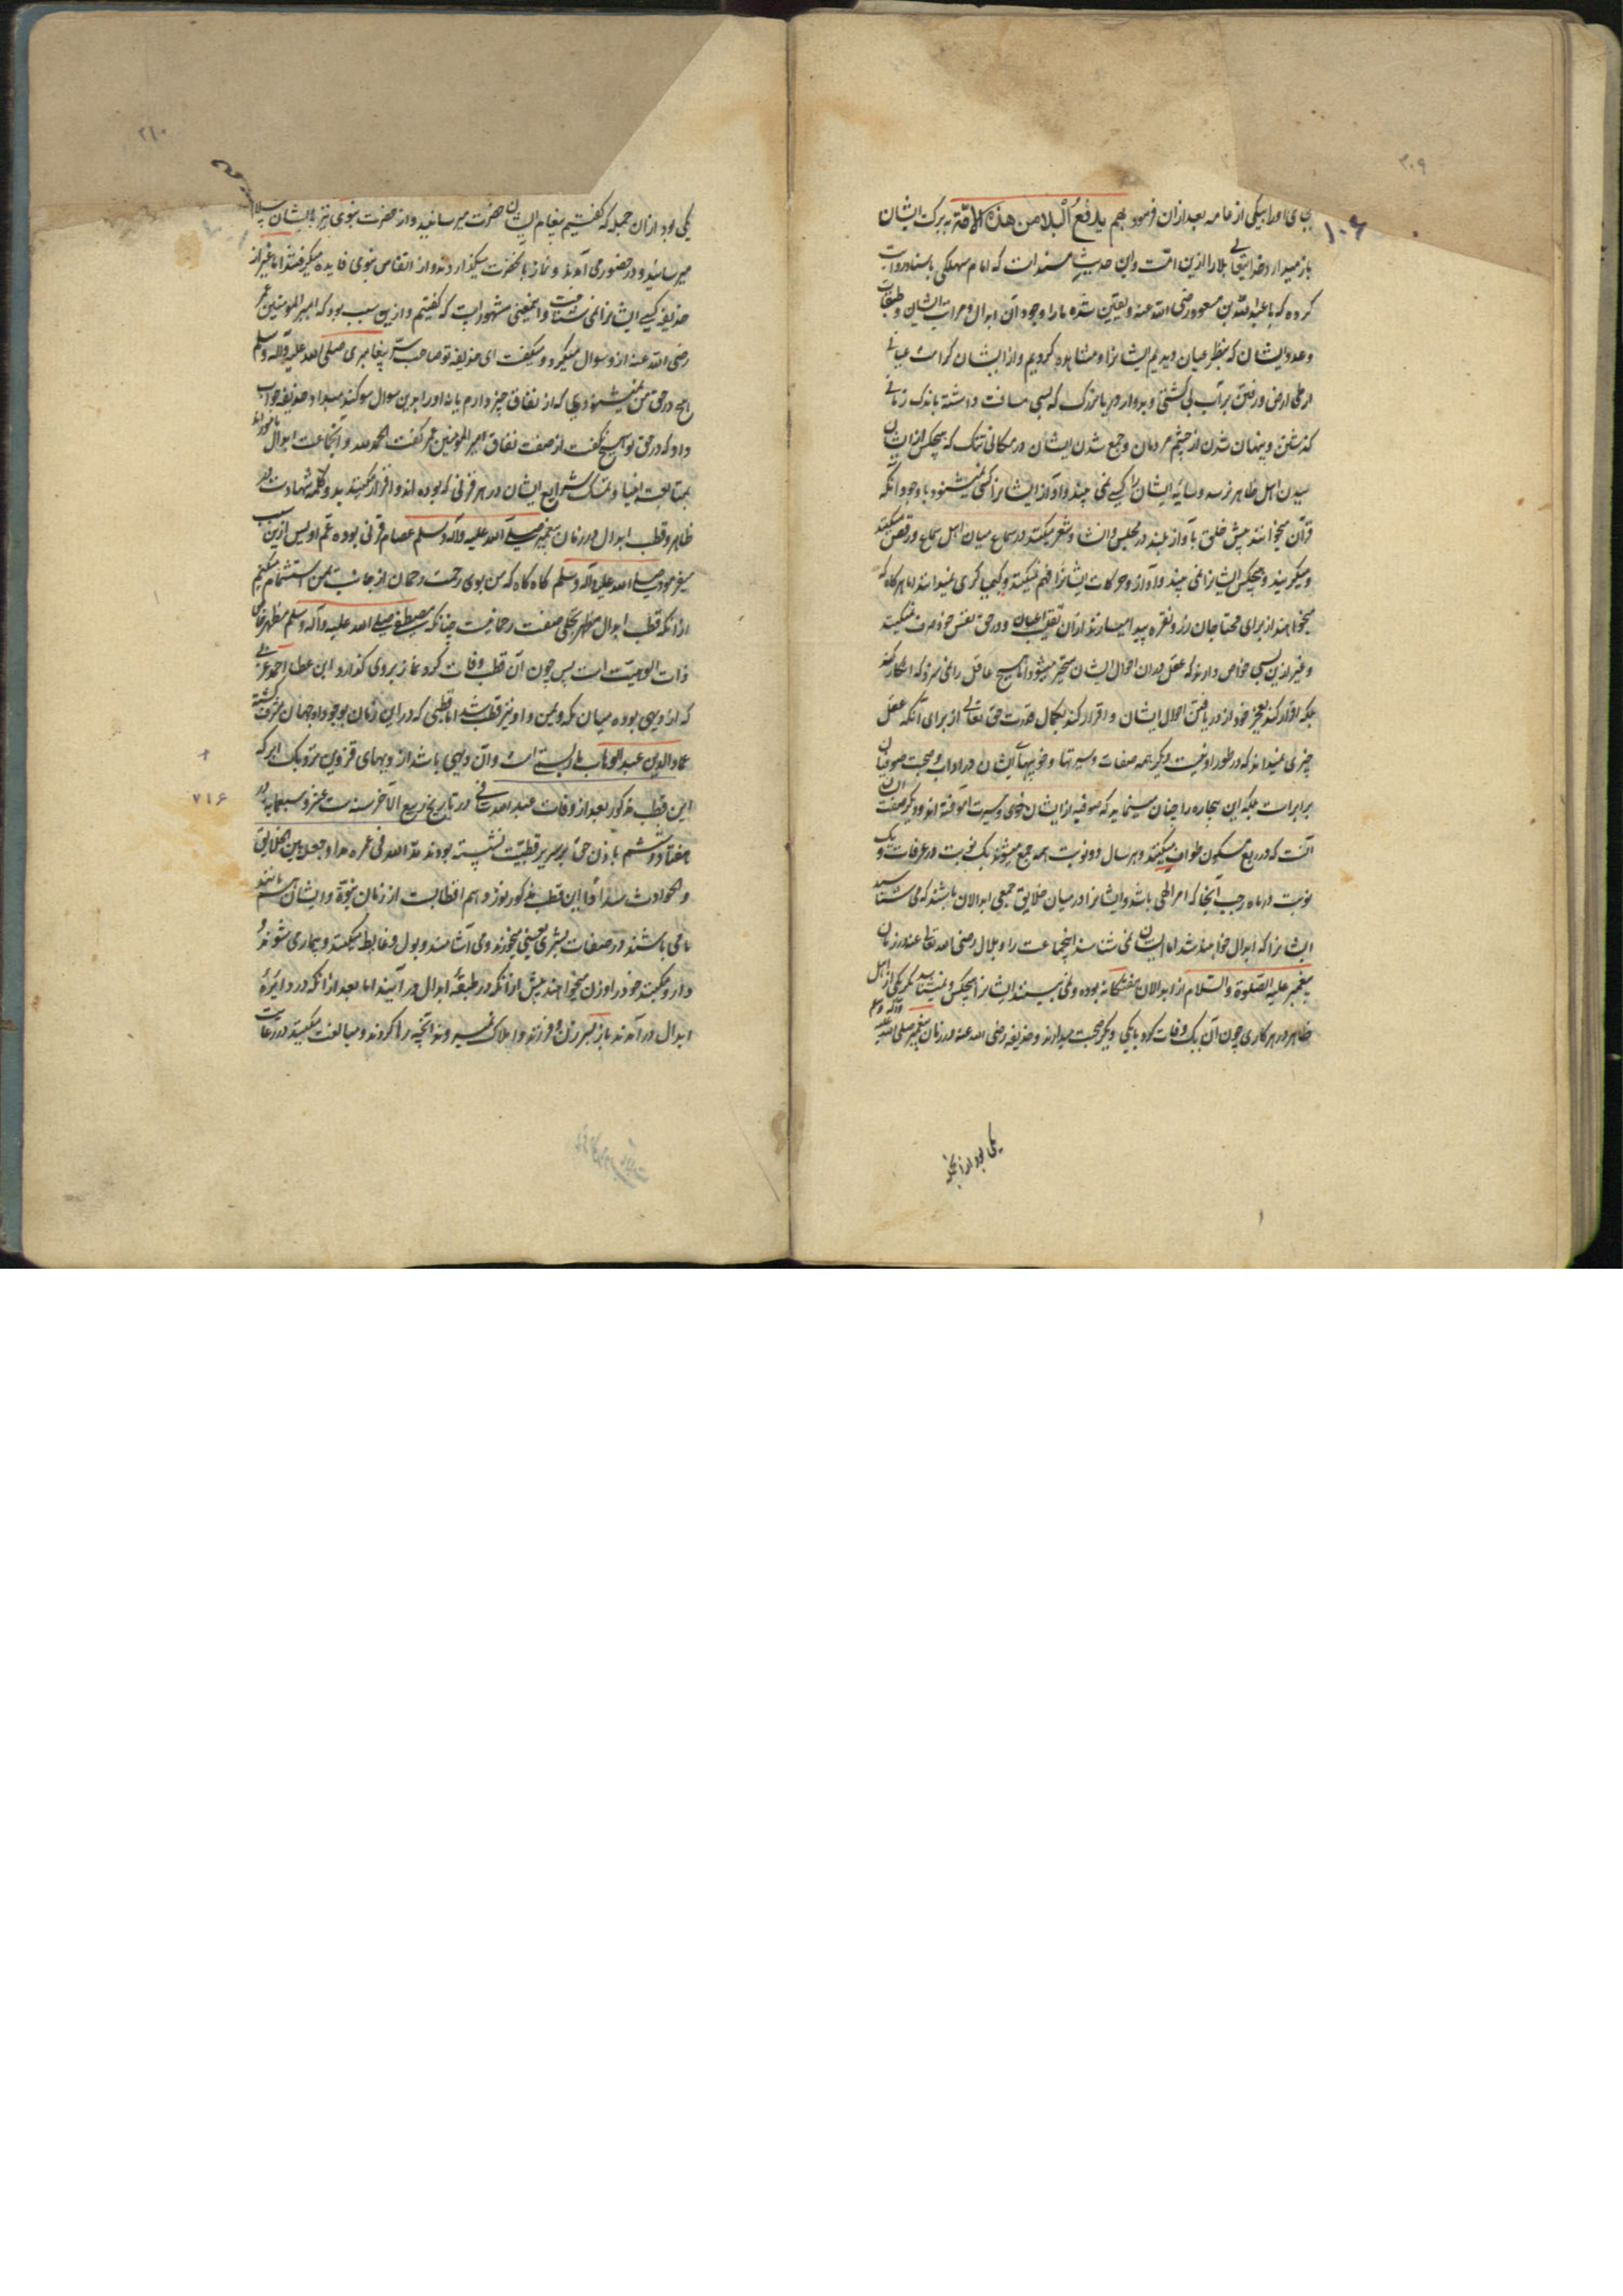 ۳۰۹
۱۰۶
بجای او را بیکی از عامه بعد از آن فرمود بهم یدفع البلا من هذه الامّة به برکت ایشان
باز میدارد خدایتعالی بلا را ازین امّت و این حدیث مسند است که امام سهلکی باسناد روایت
کرده که با عبدالله بن مسعود رضی الله عنه و یقین شده ما را وجود آن ابدال و مراتب ایشان و طبقات
و عدد ایشان که بنظر عیان دیدیم ایشانرا و مشاهده کردیم و از ایشان کرامت عیانی
از طی ارض و رفتن بر آب بی کشتی و بر هوا و دریا بزرگ که بسی مسافت داشته باندک زمانی
گذشتن و پنهان شدن از چشم مردمان و جمع شدن ایشان در مکانی تنگ که هیچکس از ایشان
بیدن اهل ظاهر نرسد و سایه ایشان را کسی نمی بیند و آواز ایشانرا کسی نمیشنود با وجود آنکه
قرآن میخوانند پیش خلق بآواز بلند در مجلس و انشاد شعر میکنند در سماع میان اهل سماع و رقص میکنند
و میگریند و هیچکس ایشانرا نمی بیند و آواز و حرکات ایشانرا فهم نمیکنند و کیمیا گری میدانند اما هرگاه که
میخواهند از برای محتاجان زر و نقره پیدا میسازند از آن و در حق نفس خود صرف نمیکنند
و غیر ازین بسی خواص دارند که عقل در آن احوال ایشان متحیر میشود اما هیچ عاقل را نمی سزد که انکار کند
بلکه اقرار کند بعجز خود از دریافتن احوال ایشان و اقرار کند بکمال قدرت حق تعالی از برای آنکه عقل
چیزی نمیداند که در طور او نیست و دیگر همه صفات و سیرتها و خوبیهای ایشان در آداب و صحبت صوفیان
برابرست بلکه این بیچاره را چنان مینماید که صوفیه از ایشان خوی و سیرت آموخته اند و دیگر صفت
آنست که در ربع مسکون طواف میکنند و هر سال دو نوبت همه جمع میشوند یک نوبت در عرفات و یک
نوبت در ماه رجب آنجا که امر الهی باشد و ایشانرا در میان خلایق جمعی ابدالان باشند که می شناسند
ایشانرا که ابدال خواهند شد اما ایشان نمی شناسند اینجماعت را و بلال رضی الله تعالی عنه در زمان
پیغمبر علیه الصلوة والسلام از ابدالان هفتگانه بوده و نمی بیند ایشانرا هیچکس و نمیشناسد مگر یکی از اهل
ظاهر در هر کاری چون آن یک وفات کرد با یکی دیگر صحبت میدارند و حذیفه رضی الله عنه در زمان پیغمبر صلی الله علیه وآله وسلم
یکی بود از آن
۳۱۰
یکی بود از آن جمله که گفتیم پیغام ایشان بحضرت میرسانید و از حضرت نبوی نیز بایشان سلام
میرسانید و در حضور می آمدند و نماز با آنحضرت میگذاردند و از انفاس نبوی فایده میگرفتند اما غیر از
حذیفه کسی ایشانرا نمی شناخت و اینمعنی مشهور است که گفتیم و ازین سبب بود که امیر المومنین عمر
رضی الله عنه از و سوال میکرد و میگفت ای حذیفه تو صاحب سرّ پیغامبری صلی الله علیه وآله وسلم
هیچ در حق من شنودی که از نفاق چیزی دارم یا نه او را بدین سوال سوگند میداد حذیفه جواب
داد که در حق تو هیچ نگفت از صفت نفاق امیر المومنین عمر گفت الحمد لله و آنجماعت ابدال مامور اند
بمتابعت انبیا و تمسک بشرایع ایشان در هر قرنی که بوده اند و اقرار میکنند بدو کلمه شهادت در
ظاهر و قطب ابدال در زمان پیغمبر صلی الله علیه وآله وسلم عصام قرنی بوده عمّ اویس ازین سبب
میفرمود صلی الله علیه وآله وسلم گاه گاه که من بوی رحمت رحمان از جانب یمن استشمام میکنم
از آنکه قطب ابدال مظهر تجلی صفت رحمانیست چنانکه مصطفی صلی الله علیه وآله وسلم مظهر خاص
ذات الوهیت است پس چون آن قطب وفات کرد نماز بر وی گذارد و ابن عطا احمد عربی
که از دیهی بوده میان مکه و یمن و او نیز قطب شد اما قطبی که در این زمان بوجود او جهان مشرف گشته
عماد الدین عبد الوهاب بارسینی است و آن دیهی باشد از دیههای قزوین نزدیک ابهر که
این قطب مذکور بعد از وفات عبد الله شامی در تاریخ ربیع الآخر سنه ست عشر و سبعمایه در ۷۱۶
هفتاد و ششم باذن حق بر سریر قطبیت نشسته بودند مدّ الله فی عمره مدا و جعل بین الخلایق
و الحوادث سدا فاما این قطب مذکور نوزدهم اقطابست از زمان نبوّة و ایشان هم مانند
ما می باشند در صفات بشری یعنی میخورند و می آشامند و بول و غایط میکنند و بیمار می شوند و
دارو میکنند خود را و زن میخواهند پیش از آنکه در طبقه ابدال در آیند اما بعد از آنکه در دایره
ابدال در آمدند باز بسر زن و فرزند و املاک نمیروند و آنچه رها کردند و مبالغت میکنند در رعایت